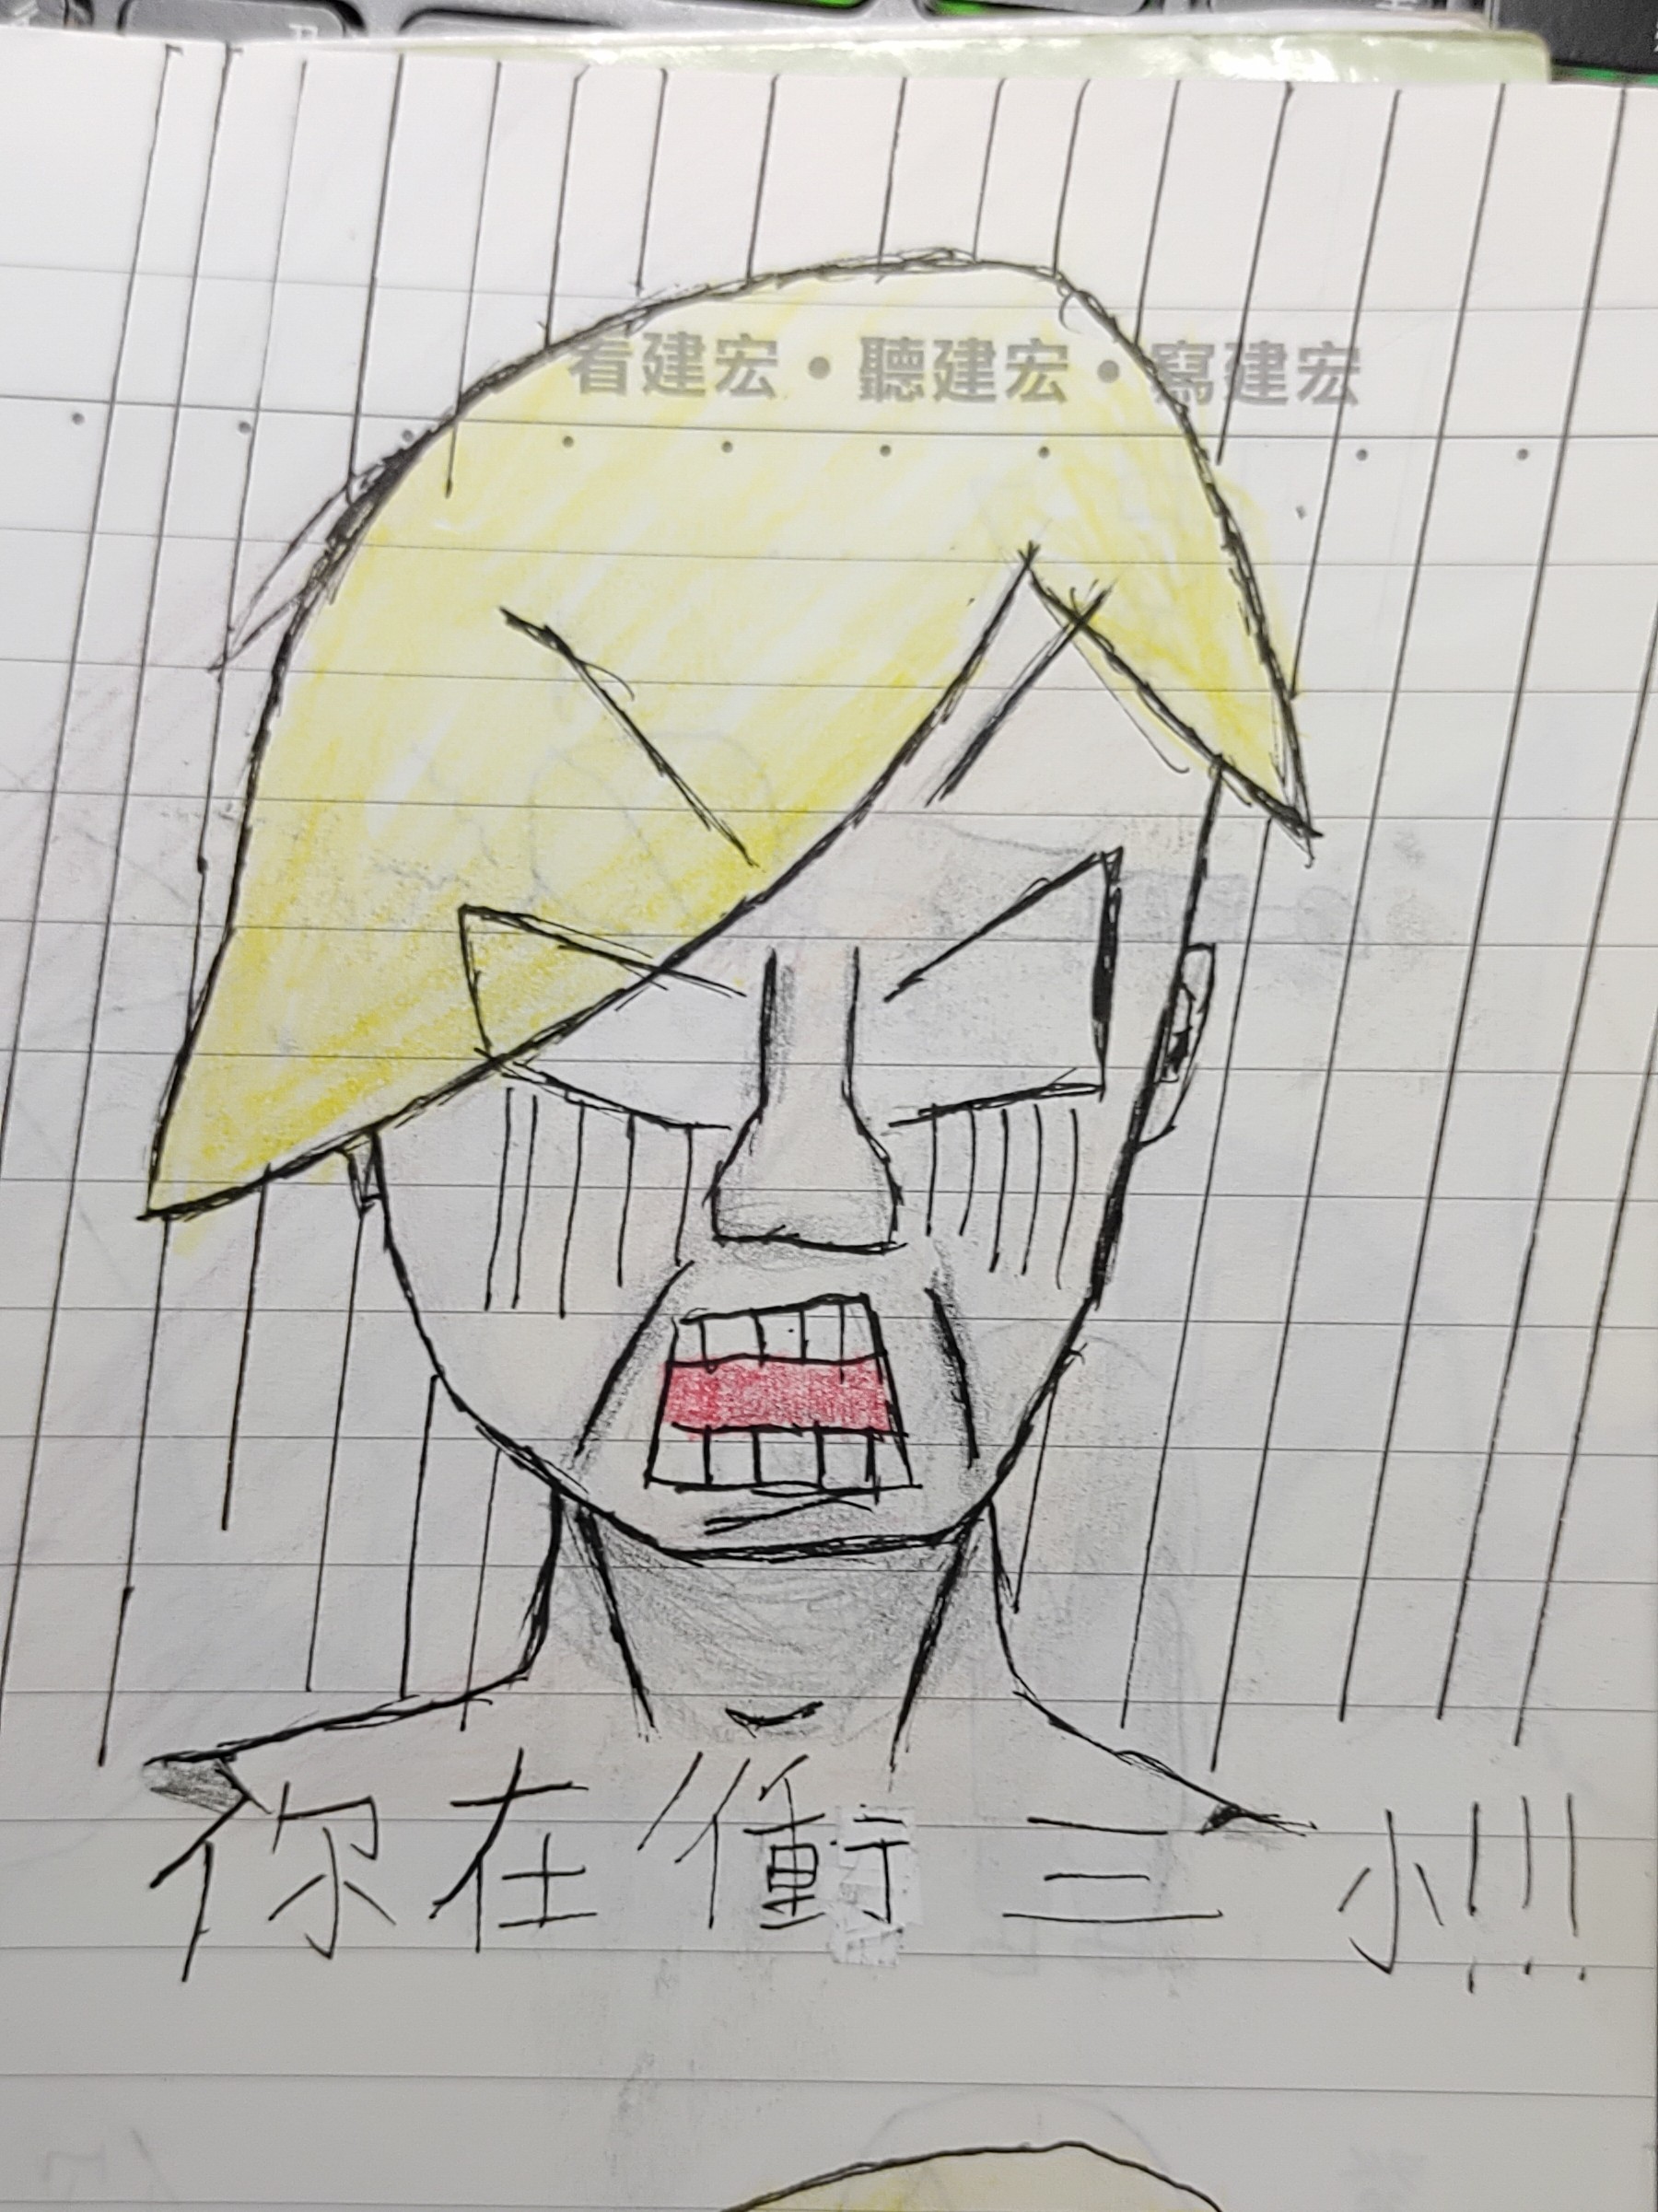 看建宏•聽建宏•寫建宏
你在衝三小!!!